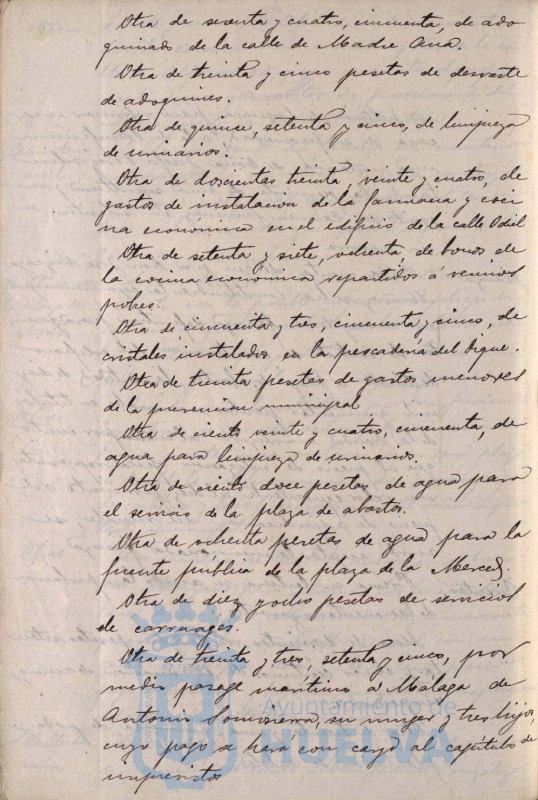 Otra de sesenta y cuatro, cincuenta, de ado
quinado de la calle de Madre Ana.
Otra de treinta y cinco pesetas de desvaste
de adoquines.
Otra de quince, setenta y cinco, de limpieza
de urinarios.
Otra de doscientas treinta, veinte y cuatro, de
gastos de instalacion de la farmacia y coci
na economica en el edificio de la calle Odiel
Otra de setenta y siete, ochenta, de bonos de
la cocina económica repartidos á vecinos
pobres.
Otra de cincuenta y tres, cincuenta y cinco, de
cristales instalados en la pescaderia del Dique.
Otra de treinta pesetas de gastos menores
de la prevencion municipal
Otra de ciento veinte y cuatro, cincuenta, de
agua para limpieza de urinarios.
Otra de ciento doce pesetas de agua para
el servicio de la plaza de abastos.
Otra de ochenta pesetas de agua para la
fuente pública de la plaza de la Merced.
Otra de diez y ocho pesetas de servicios
de carruages.
Otra de treinta y tres, setenta y cinco, por
medio pasage marítimo a Malaga de
Antonio Somosierra, su muger y tres hijos,
cuyo pago se hara con cargo al capítulo de
imprevistos
Ayuntamiento de
HUELVA